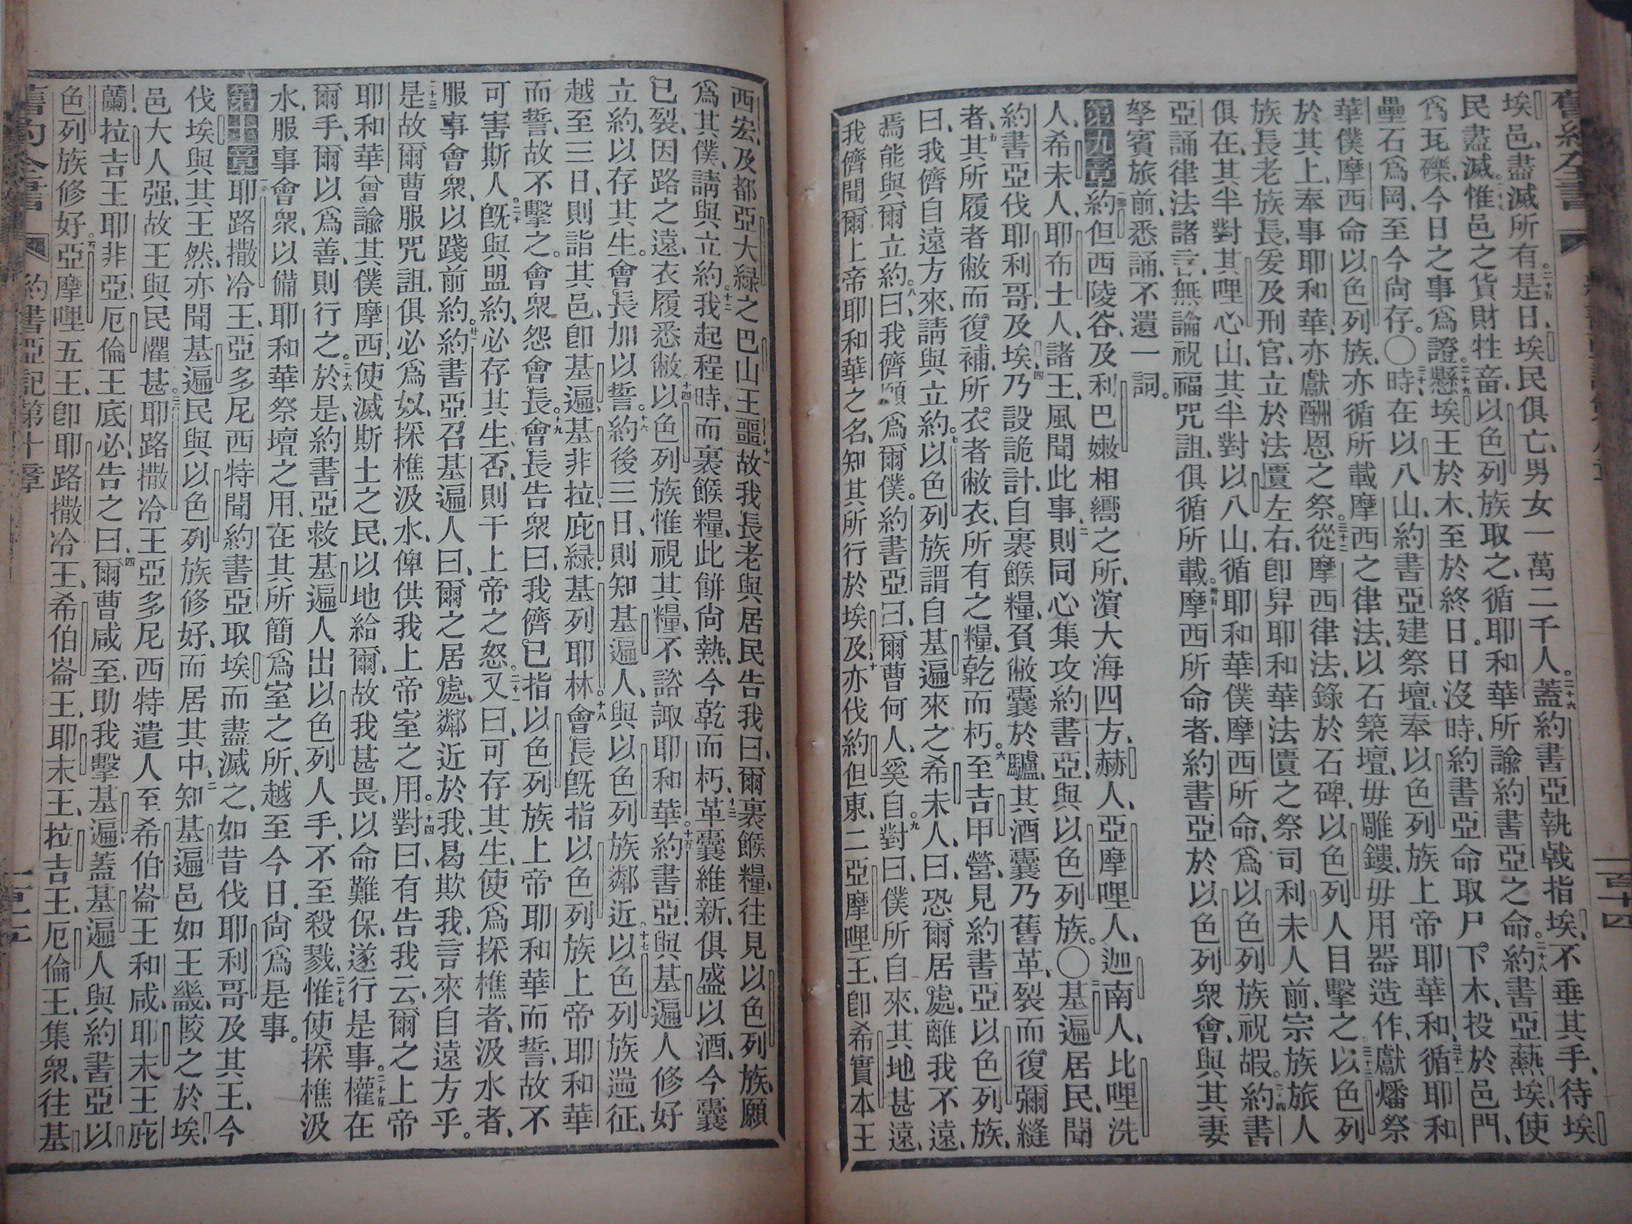 舊約全書
埃邑盡滅所有二十五是日埃民俱亡男女一萬二千人二十六蓋約書亞執戟指埃不垂其手待埃
民盡滅二十七惟邑之貨財牲畜以色列族取之循耶和華所諭約書亞之命二十八約書亞爇埃使
爲瓦礫今日之事爲證二十九懸埃王於木至於終日日沒時約書亞命取尸下木投於邑門
壘石爲岡至今尚存〇三十時在以八山約書亞建祭壇奉以色列族上帝耶和華三十一循耶和
華僕摩西命以色列族亦循所載摩西之律法以石築壇毋雕鏤毋用器造作獻燔祭
於其上奉事耶和華亦獻酬恩之祭三十二從摩西律法錄於石碑以色列人目擊之三十三以色列
族長老族長爰及刑官立於法匱左右卽舁耶和華法匱之祭司利未人前宗族旅人
俱在其半對其哩心山其半對以八山循耶和華僕摩西所命爲以色列族祝嘏三十四約書
亞誦律法諸言無論祝福咒詛俱循所載三十五摩西所命者約書亞於以色列衆會與其妻
孥賓旅前悉誦不遺一詞
第九章約但西陵谷及利巴嫩相嚮之所濱大海四方赫人亞摩哩人迦南人比哩洗
人希未人耶布士人諸王風聞此事二則同心集攻約書亞與以色列族〇三基遍居民聞
約書亞伐耶利哥及埃四乃設詭計自裹餱糧負敝囊於驢其酒囊乃舊革裂而復彌縫
者五其所履者敝而復補所衣者敝衣所有之糧乾而朽六至吉甲營見約書亞以色列族
曰我儕自遠方來請與立約七以色列族謂自基遍來之希未人曰恐爾居處離我不遠
焉能與爾立約八曰我儕願爲爾僕約書亞曰爾曹何人奚自九對曰僕所自來其地甚遠
我儕聞爾上帝耶和華之名知其所行於埃及十亦伐約但東二亞摩哩王卽希實本王
西宏及都亞大綠之巴山王噩十一故我長老與居民告我曰爾裹餱糧往見以色列族願
爲其僕請與立約十二我起程時而裹餱糧此餅尚熱今乾而朽十三革囊維新俱盛以酒今囊
已裂因路之遠衣履悉敝十四以色列族惟視其糧不諮諏耶和華十五約書亞與基遍人修好
立約以存其生會長加以誓十六約後三日則知基遍人與以色列族鄰近十七以色列族遄征
越至三日則詣其邑卽基遍基非拉庇綠基列耶林十八會長旣指以色列族上帝耶和華
而誓故不擊之會衆怨會長十九會長告衆曰我儕已指以色列族上帝耶和華而誓故不
可害斯人二十旣與盟約必存其生否則干上帝之怒二十一又曰可存其生使爲採樵者汲水者
服事會衆以踐前約二十二約書亞召基遍人曰爾之居處鄰近於我曷欺我言來自遠方乎
二十三是故爾曹服咒詛俱必爲奴採樵汲水俾供我上帝室之用二十四對曰有告我云爾之上帝
耶和華曾諭其僕摩西使滅斯土之民以地給爾故我甚畏以命難保遂行是事二十五權在
爾手爾以爲善則行之二十六於是約書亞救基遍人出以色列人手不至殺戮二十七惟使採樵汲
水服事會衆以備耶和華祭壇之用在其所簡爲室之所越至今日尚爲是事
第十章耶路撒冷王亞多尼西特聞約書亞取埃而盡滅之如昔伐耶利哥及其王今
伐埃與其王然亦聞基遍民與以色列族修好而居其中二知基遍邑如王畿較之於埃
邑大人强故王與民懼甚三耶路撒冷王亞多尼西特遣人至希伯崙王和咸耶末王庇
蘭拉吉王耶非亞厄倫王底必告之曰四爾曹咸至助我擊基遍蓋基遍人與約書亞以
色列族修好五亞摩哩五王卽耶路撒冷王希伯崙王耶末王拉吉王厄倫王集衆往基
舊約全書
約書亞記第十章
一百十五
一百十四